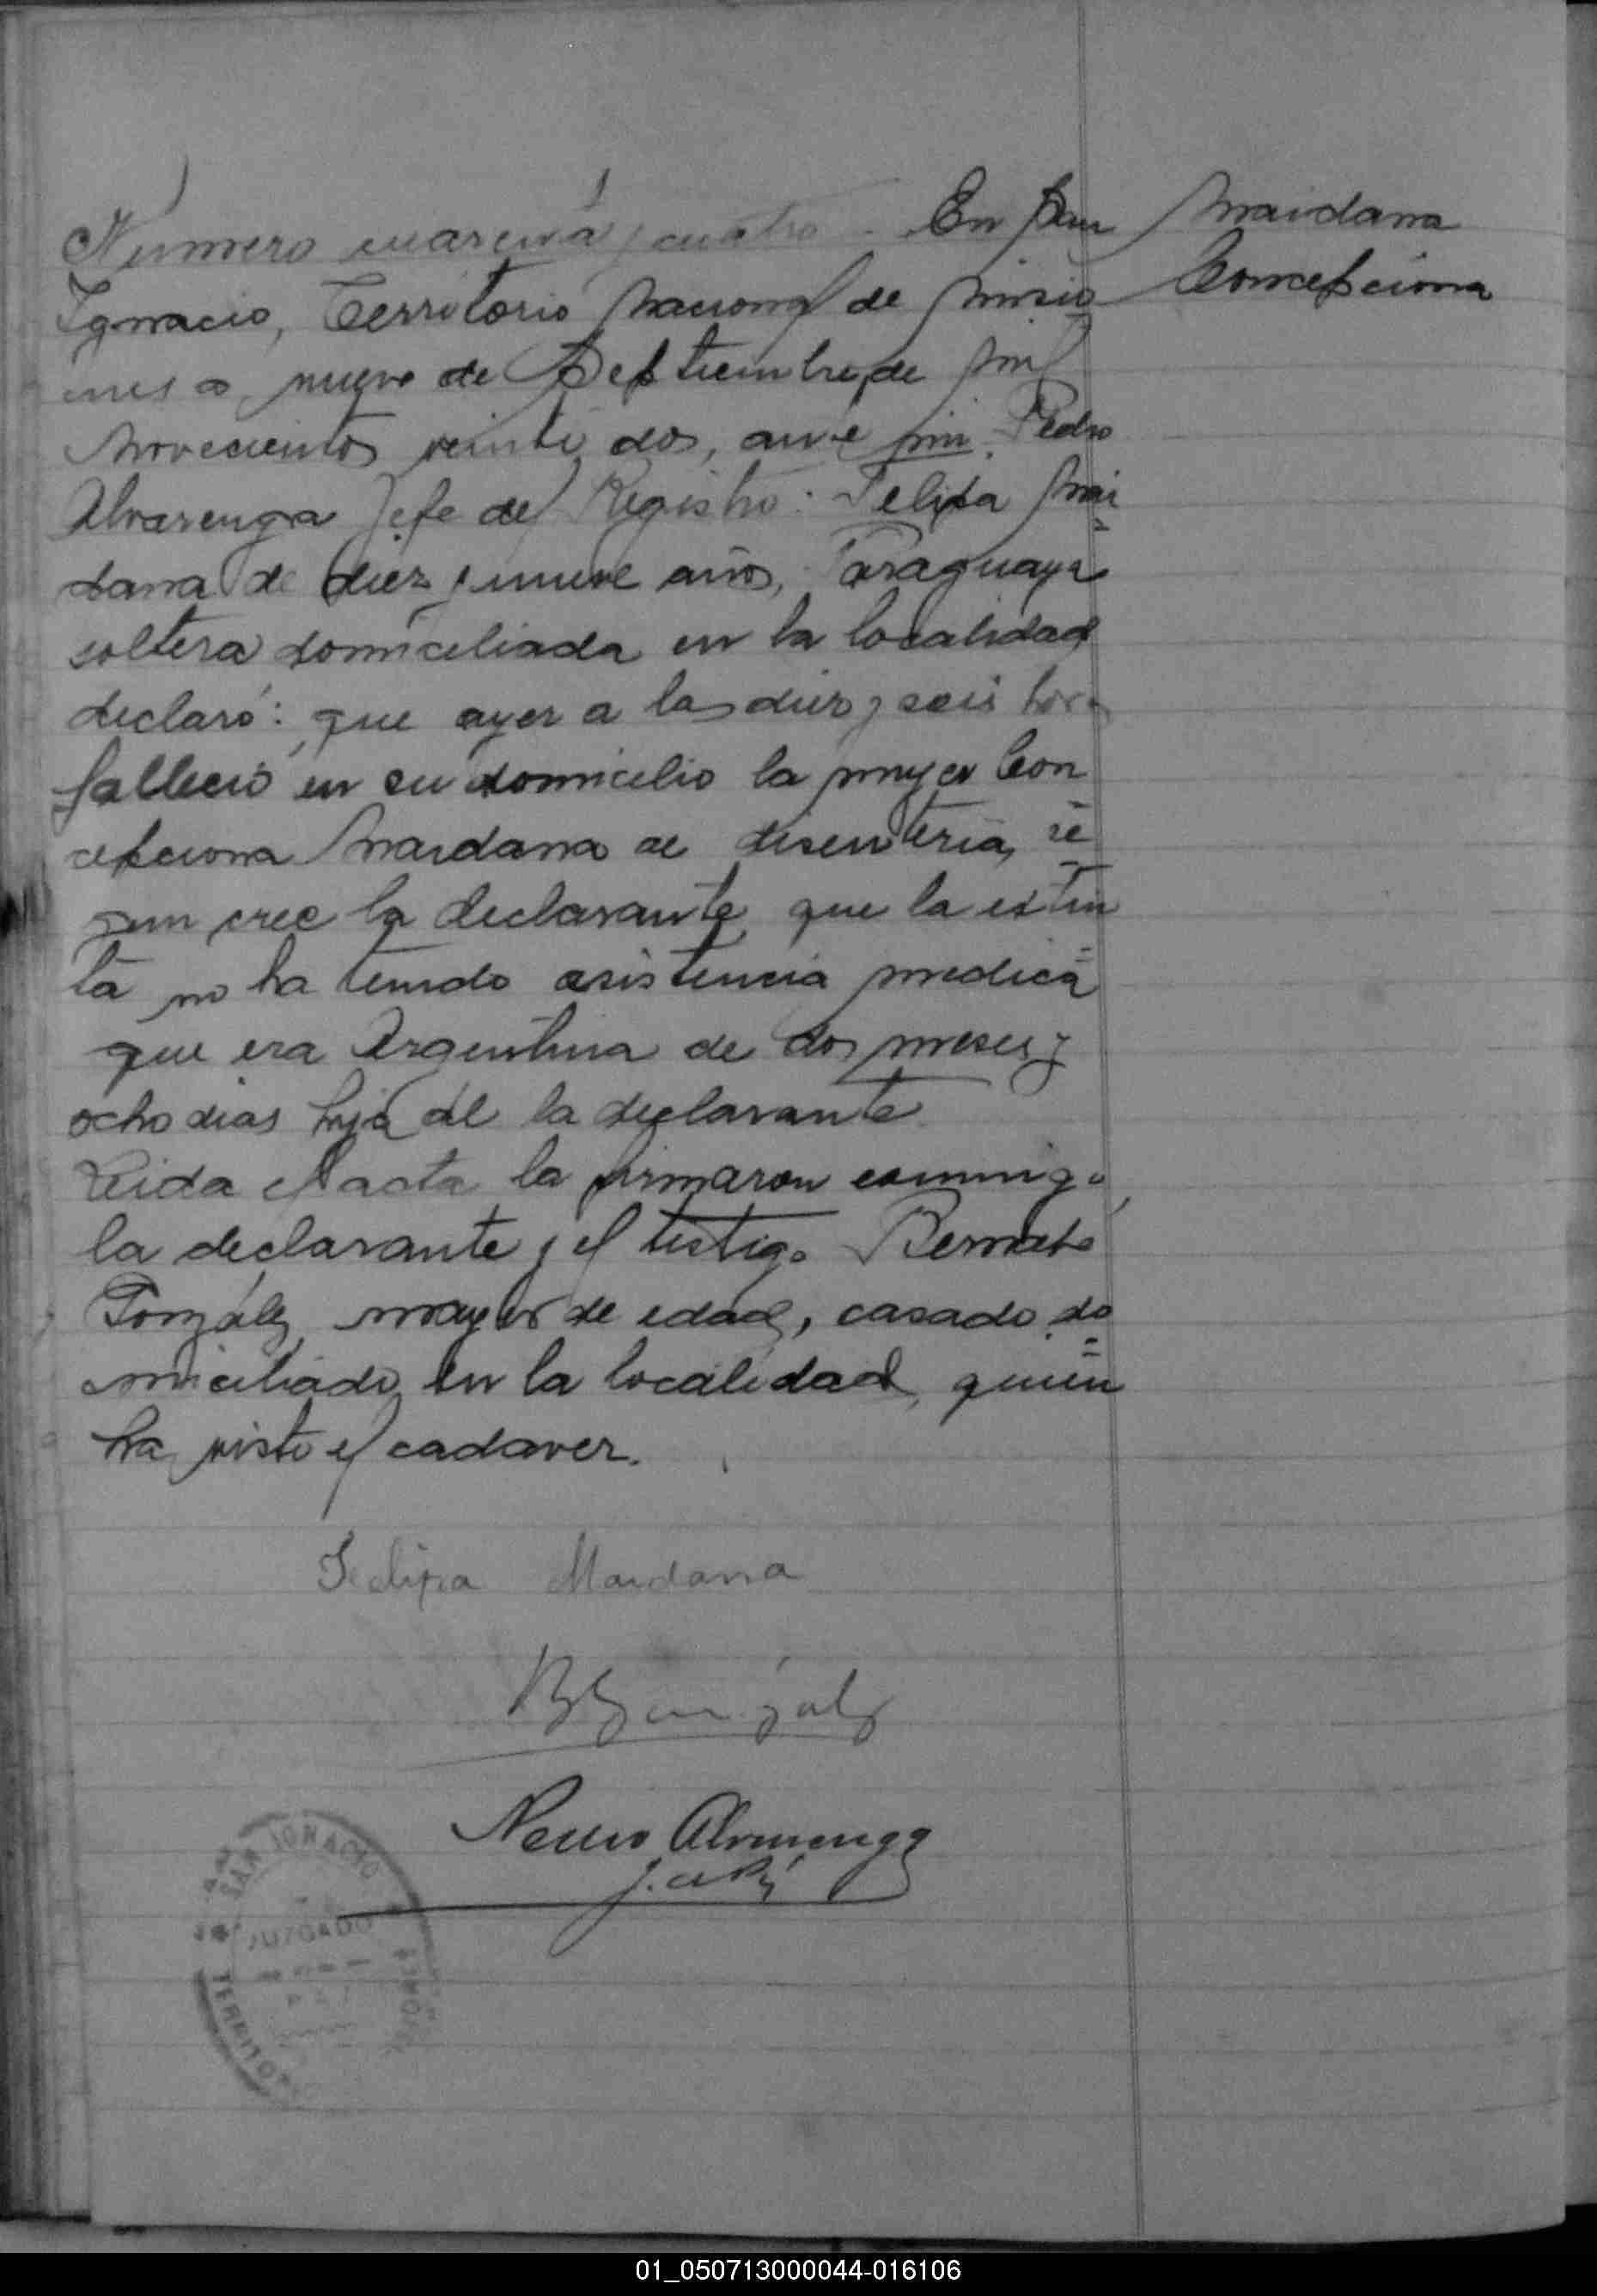 Numero cuarenta y cuatro. En San
Ignacio, Territorio Nacional de Misio
nes a nueve de Septiembre de Mil
Novecientos veinte dos, ante mi Pedro
Alvarenga Jefe del Registro: Felipa Mai
dana de diez y nueve años, Paraguaya
soltera domiciliada en la localidad
declaró: que ayer a las diez y seis horas
falleció en su domicilio la mujer Con
cepciona Maidana de disenteria, se
gun cree la declarante que la extin
ta no ha tenido asistencia medica
que era Argentina de dos meses y
ocho dias hija de la declarante
Leida el acta la firmaron conmigo,
la declarante y el testigo Bernabe
González mayor de edad, casado do
miciliado en la localidad, quien
ha visto el cadaver.
Maidana
Concepciona
Felipa Maidana
B González
Pedro Alvarenga
J. del R.
SAN IGNACIO
JUZGADO
DE PAZ
TERRITORIO
01_050713000044-016106